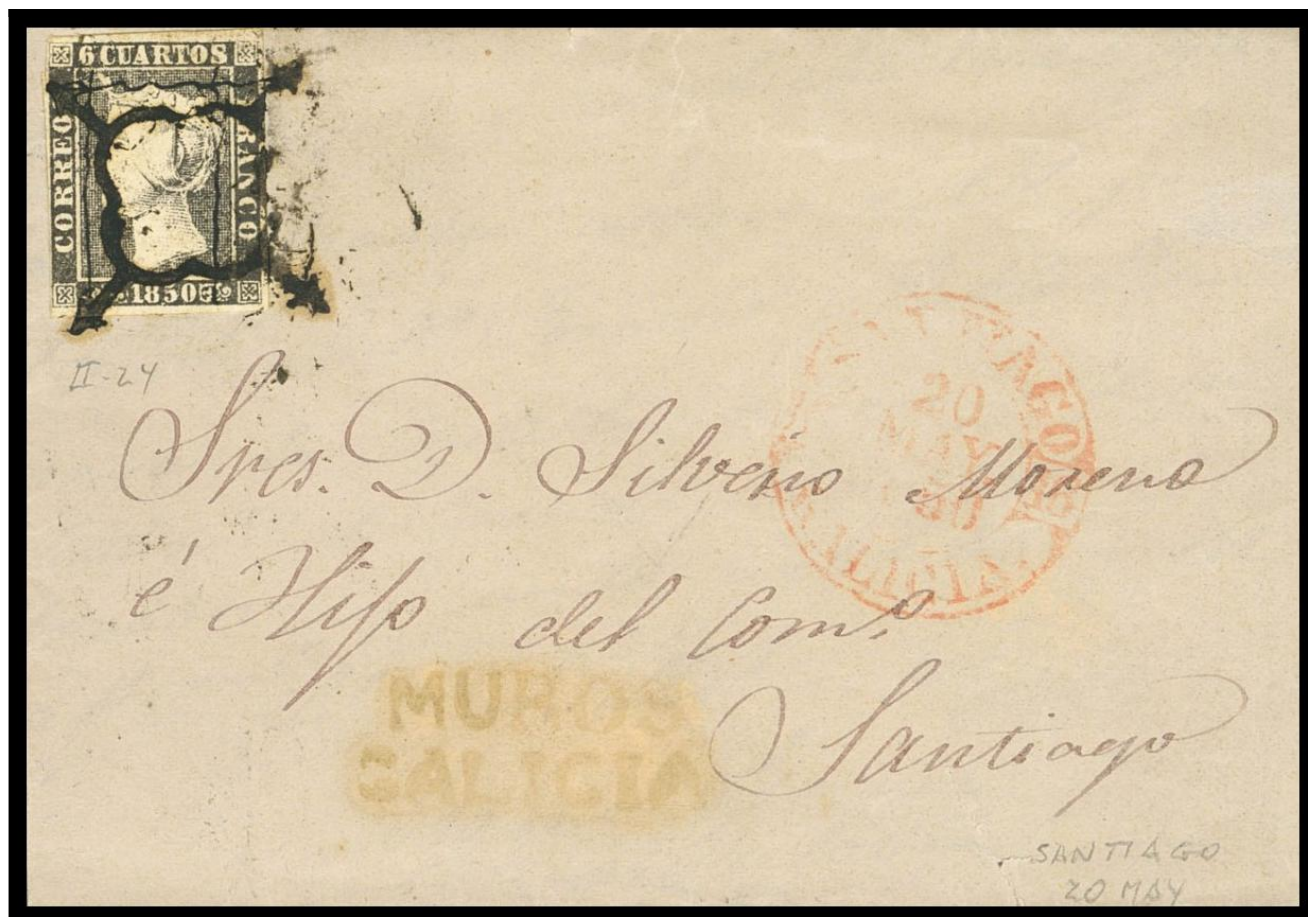 6 CUARTOS
CORREO
FRANCO
1850
II-24
SANTIAGO
20
MAY
GALICIA
Sres. D. Silverio Moreno
é Hijo del Com.º
MUROS
GALICIA
Santiago
SANTIAGO
20 MAY